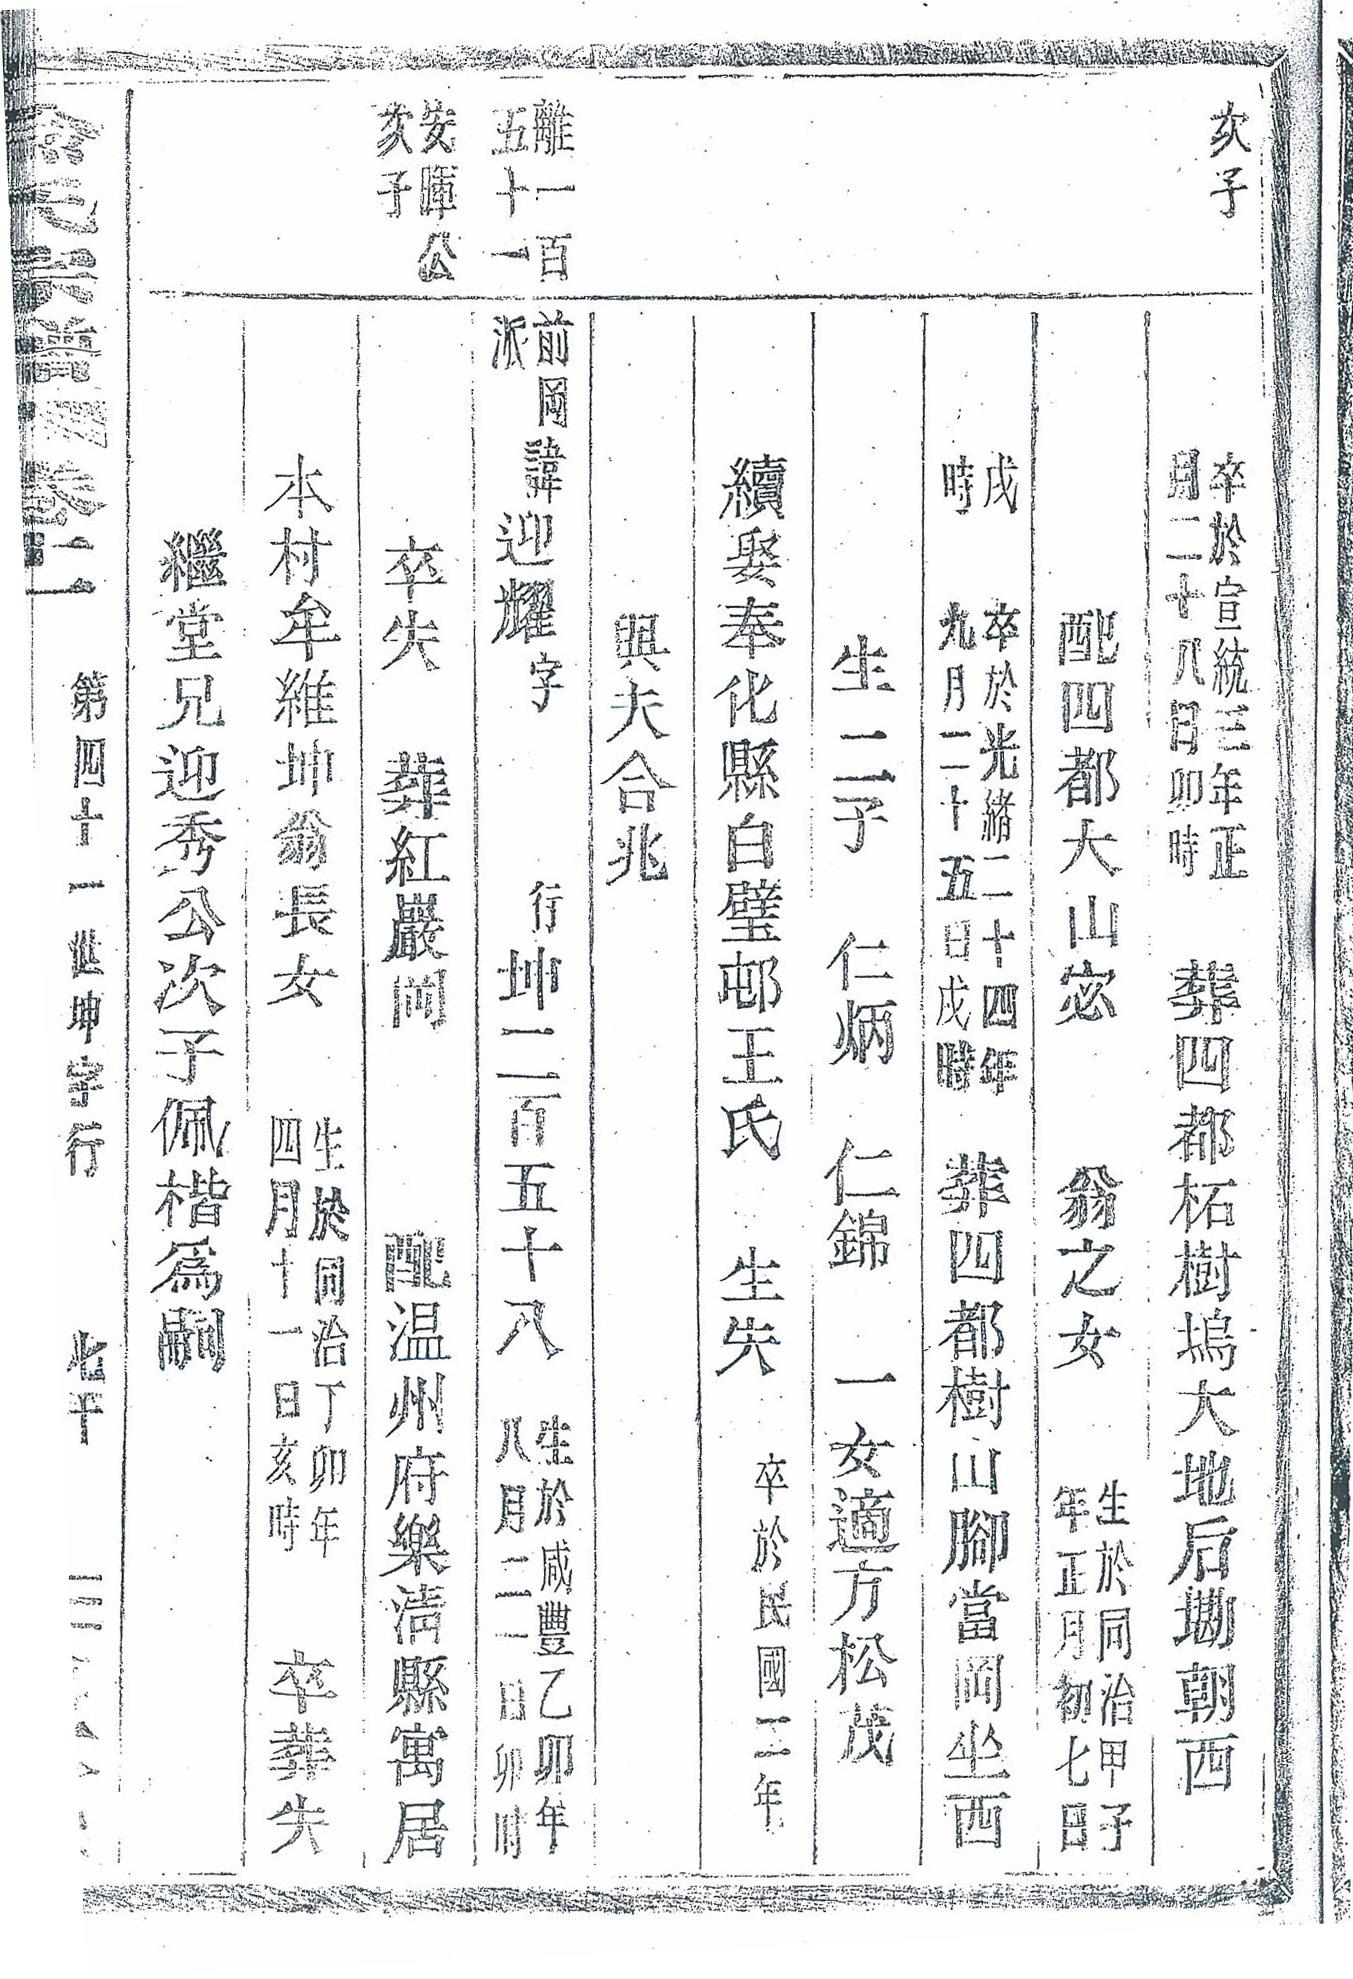 次子
卒於宣統三年正
月二十八日卯時
葬四都柘樹塢大地后塝朝西
配四都大山宓　翁之女
生於同治甲子
年正月初七日
戌
時
卒於光緒二十四年
九月二十五日戌時
葬四都樹山腳當岡坐西
生二子　仁炳　仁錦　一女適方松茂
續娶奉化縣白壁邨王氏　生失
卒於民國二年
與夫合兆
離一百
五十一
前岡
派
諱迎耀字　行坤二百五十八
生於咸豐乙卯年
八月二二日卯時
安暉公
次子
卒失　葬紅巖岡　配温州府樂清縣寓居
本村牟維坤翁長女
生於同治丁卯年
四月十一日亥時
卒葬失
繼堂兄迎秀公次子佩楷爲嗣
卷二　第四十一世坤字行